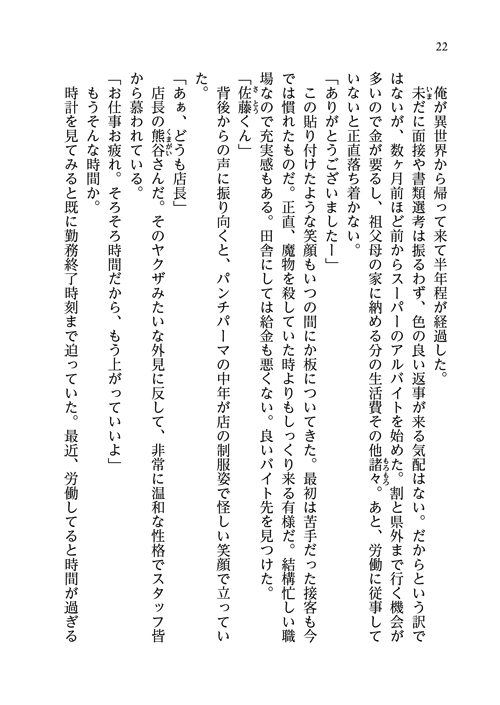 22
俺が異世界から帰って来て半年程が経過した。
未だに面接や書類選考は振るわず、色の良い返事が来る気配はない。だからという訳で
はないが、数ヶ月前ほど前からスーパーのアルバイトを始めた。割と県外まで行く機会が
多いので金が要るし、祖父母の家に納める分の生活費その他諸々。あと、労働に従事して
いないと正直落ち着かない。
「ありがとうございましたー」
この貼り付けたような笑顔もいつの間にか板についてきた。最初は苦手だった接客も今
では慣れたものだ。正直、魔物を殺していた時よりもしっくり来る有様だ。結構忙しい職
場なので充実感もある。田舎にしては給金も悪くない。良いバイト先を見つけた。
「佐藤くん」
背後からの声に振り向くと、パンチパーマの中年が店の制服姿で怪しい笑顔で立ってい
た。
「あぁ、どうも店長」
店長の熊谷さんだ。そのヤクザみたいな外見に反して、非常に温和な性格でスタッフ皆
から慕われている。
「お仕事お疲れ。そろそろ時間だから、もう上がっていいよ」
もうそんな時間か。
時計を見てみると既に勤務終了時刻まで迫っていた。最近、労働してると時間が過ぎる